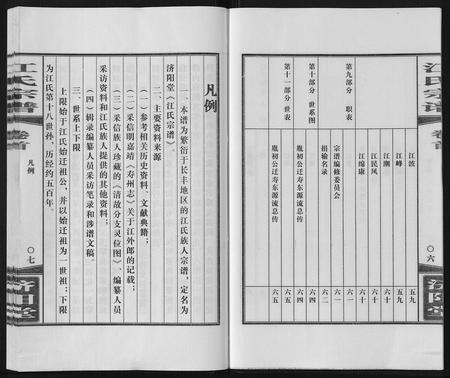 江氏宗谱
卷首
〇六
济阳堂
江波
五九
江峰
五九
江潮
六十
江民风
六十
江绵康
六十
第九部分 职表
宗谱编修委员会
六一
捐输名录
六二
第十部分 世系图
胤初公迁寿东源流总传
六四
第十一部分 世表
胤初公迁寿东源流总传
六五
凡例
一、本谱为繁衍于长丰地区的江氏族人宗谱，定名为
济阳堂《江氏宗谱》。
二、主要资料来源
（一）参考相关历史资料、文献典籍；
（二）采信明嘉靖《寿州志》关于江外郎的记载；
（三）采信族人珍藏的《清故分支灵位图》、编纂人员
采访资料和江氏族人提供的其他资料；
（四）辑录编纂人员采访笔录和涉谱文稿。
三、世系上下限
上限始于江氏始迁祖公，并以始迁祖为一世祖；下限
为江氏第十八世孙，历经约五百年。
江氏宗谱
卷首
凡例
〇七
济阳堂